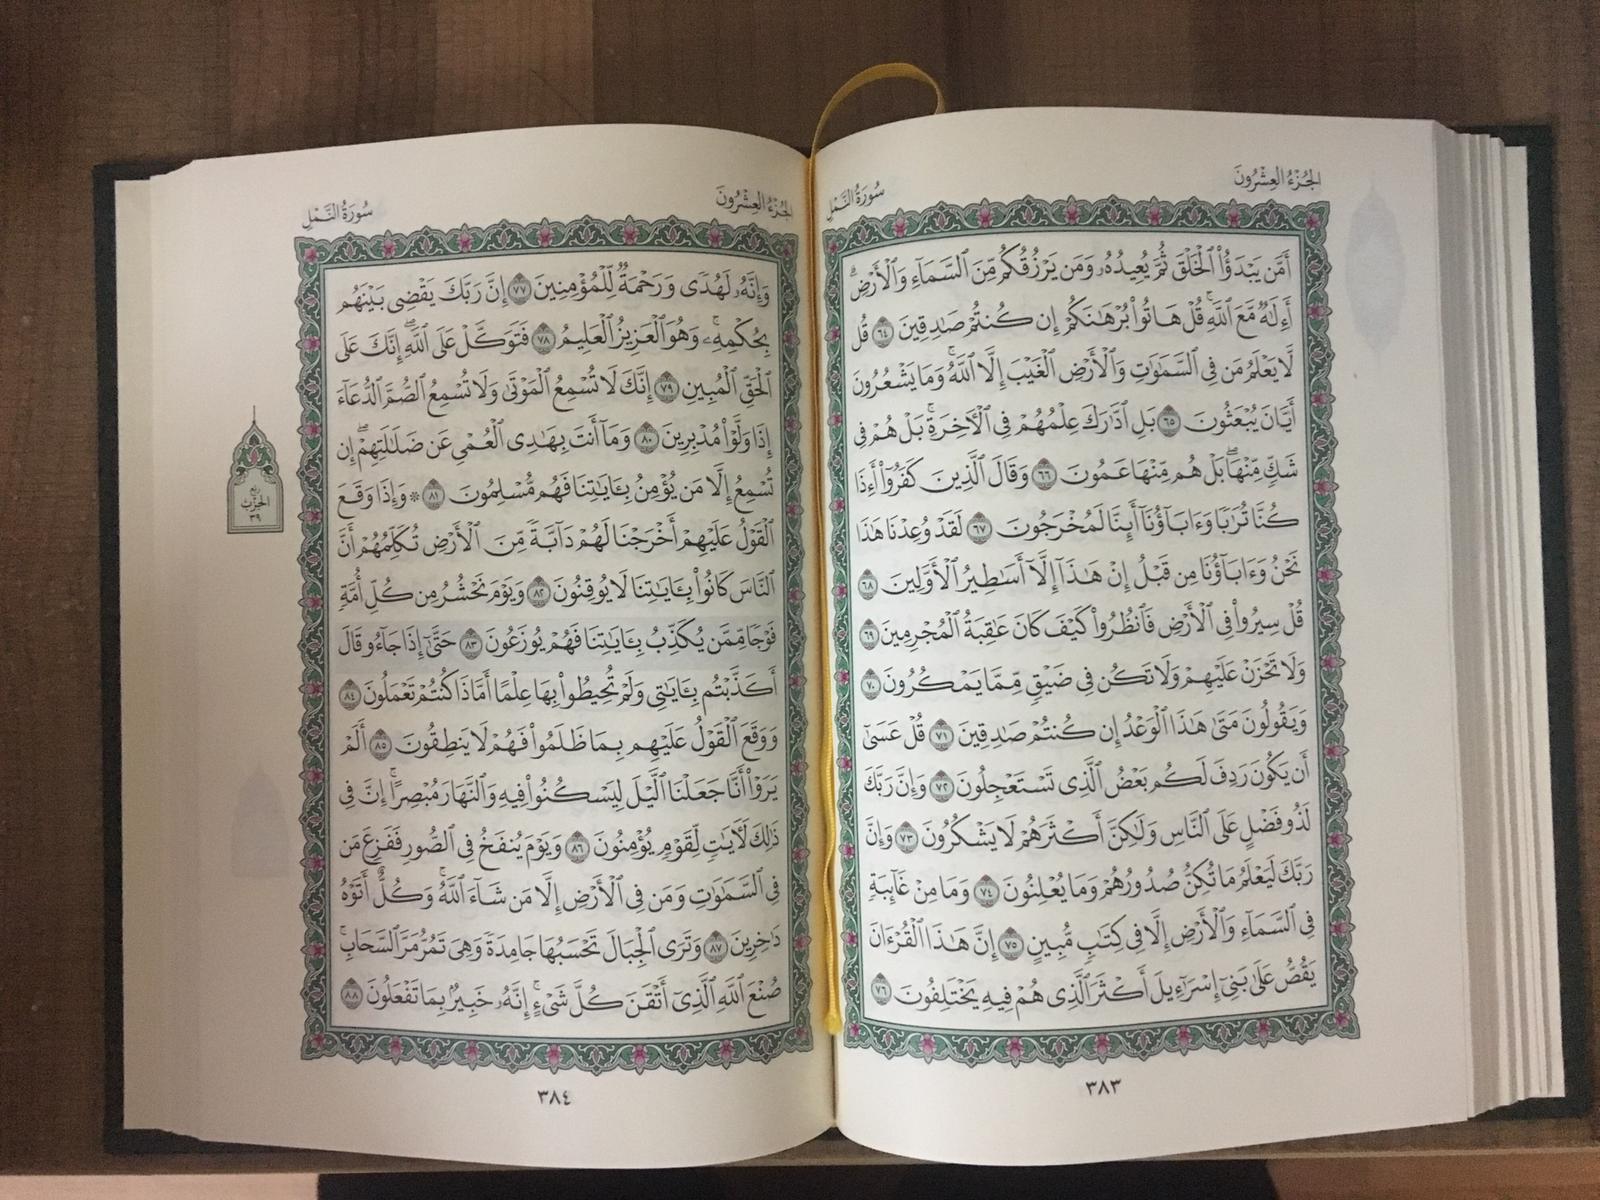 الجُزْءُ العِشْرُونَ
سُورَةُ النَّمْلِ
أَمَّن يَبْدَؤُا۟ ٱلْخَلْقَ ثُمَّ يُعِيدُهُۥ وَمَن يَرْزُقُكُم مِّنَ ٱلسَّمَآءِ وَٱلْأَرْضِ ۗ
أَءِلَٰهٌ مَّعَ ٱللَّهِ ۚ قُلْ هَاتُوا۟ بُرْهَٰنَكُمْ إِن كُنتُمْ صَٰدِقِينَ ٦٤ قُل
لَّا يَعْلَمُ مَن فِى ٱلسَّمَٰوَٰتِ وَٱلْأَرْضِ ٱلْغَيْبَ إِلَّا ٱللَّهُ ۚ وَمَا يَشْعُرُونَ
أَيَّانَ يُبْعَثُونَ ٦٥ بَلِ ٱدَّٰرَكَ عِلْمُهُمْ فِى ٱلْءَاخِرَةِ ۚ بَلْ هُمْ فِى
شَكٍّ مِّنْهَا ۖ بَلْ هُم مِّنْهَا عَمُونَ ٦٦ وَقَالَ ٱلَّذِينَ كَفَرُوٓا۟ أَءِذَا
كُنَّا تُرَٰبًا وَءَابَآؤُنَآ أَئِنَّا لَمُخْرَجُونَ ٦٧ لَقَدْ وُعِدْنَا هَٰذَا
نَحْنُ وَءَابَآؤُنَا مِن قَبْلُ إِنْ هَٰذَآ إِلَّآ أَسَٰطِيرُ ٱلْأَوَّلِينَ ٦٨
قُلْ سِيرُوا۟ فِى ٱلْأَرْضِ فَٱنظُرُوا۟ كَيْفَ كَانَ عَٰقِبَةُ ٱلْمُجْرِمِينَ ٦٩
وَلَا تَحْزَنْ عَلَيْهِمْ وَلَا تَكُن فِى ضَيْقٍ مِّمَّا يَمْكُرُونَ ٧٠
وَيَقُولُونَ مَتَىٰ هَٰذَا ٱلْوَعْدُ إِن كُنتُمْ صَٰدِقِينَ ٧١ قُلْ عَسَىٰٓ
أَن يَكُونَ رَدِفَ لَكُم بَعْضُ ٱلَّذِى تَسْتَعْجِلُونَ ٧٢ وَإِنَّ رَبَّكَ
لَذُو فَضْلٍ عَلَى ٱلنَّاسِ وَلَٰكِنَّ أَكْثَرَهُمْ لَا يَشْكُرُونَ ٧٣ وَإِنَّ
رَبَّكَ لَيَعْلَمُ مَا تُكِنُّ صُدُورُهُمْ وَمَا يُعْلِنُونَ ٧٤ وَمَا مِنْ غَآئِبَةٍ
فِى ٱلسَّمَآءِ وَٱلْأَرْضِ إِلَّا فِى كِتَٰبٍ مُّبِينٍ ٧٥ إِنَّ هَٰذَا ٱلْقُرْءَانَ
يَقُصُّ عَلَىٰ بَنِىٓ إِسْرَٰٓءِيلَ أَكْثَرَ ٱلَّذِى هُمْ فِيهِ يَخْتَلِفُونَ ٧٦
٣٨٣
الجُزْءُ العِشْرُونَ
سُورَةُ النَّمْلِ
وَإِنَّهُۥ لَهُدًى وَرَحْمَةٌ لِّلْمُؤْمِنِينَ ٧٧ إِنَّ رَبَّكَ يَقْضِى بَيْنَهُم
بِحُكْمِهِۦ ۚ وَهُوَ ٱلْعَزِيزُ ٱلْعَلِيمُ ٧٨ فَتَوَكَّلْ عَلَى ٱللَّهِ ۖ إِنَّكَ عَلَى
ٱلْحَقِّ ٱلْمُبِينِ ٧٩ إِنَّكَ لَا تُسْمِعُ ٱلْمَوْتَىٰ وَلَا تُسْمِعُ ٱلصُّمَّ ٱلدُّعَآءَ
إِذَا وَلَّوْا۟ مُدْبِرِينَ ٨٠ وَمَآ أَنتَ بِهَٰدِى ٱلْعُمْىِ عَن ضَلَٰلَتِهِمْ ۖ إِن
تُسْمِعُ إِلَّا مَن يُؤْمِنُ بِـَٔايَٰتِنَا فَهُم مُّسْلِمُونَ ٨١ ۞ وَإِذَا وَقَعَ
ٱلْقَوْلُ عَلَيْهِمْ أَخْرَجْنَا لَهُمْ دَآبَّةً مِّنَ ٱلْأَرْضِ تُكَلِّمُهُمْ أَنَّ
ٱلنَّاسَ كَانُوا۟ بِـَٔايَٰتِنَا لَا يُوقِنُونَ ٨٢ وَيَوْمَ نَحْشُرُ مِن كُلِّ أُمَّةٍ
فَوْجًا مِّمَّن يُكَذِّبُ بِـَٔايَٰتِنَا فَهُمْ يُوزَعُونَ ٨٣ حَتَّىٰٓ إِذَا جَآءُو قَالَ
أَكَذَّبْتُم بِـَٔايَٰتِى وَلَمْ تُحِيطُوا۟ بِهَا عِلْمًا أَمَّاذَا كُنتُمْ تَعْمَلُونَ ٨٤
وَوَقَعَ ٱلْقَوْلُ عَلَيْهِم بِمَا ظَلَمُوا۟ فَهُمْ لَا يَنطِقُونَ ٨٥ أَلَمْ
يَرَوْا۟ أَنَّا جَعَلْنَا ٱلَّيْلَ لِيَسْكُنُوا۟ فِيهِ وَٱلنَّهَارَ مُبْصِرًا ۚ إِنَّ فِى
ذَٰلِكَ لَءَايَٰتٍ لِّقَوْمٍ يُؤْمِنُونَ ٨٦ وَيَوْمَ يُنفَخُ فِى ٱلصُّورِ فَفَزِعَ مَن
فِى ٱلسَّمَٰوَٰتِ وَمَن فِى ٱلْأَرْضِ إِلَّا مَن شَآءَ ٱللَّهُ ۚ وَكُلٌّ أَتَوْهُ
دَٰخِرِينَ ٨٧ وَتَرَى ٱلْجِبَالَ تَحْسَبُهَا جَامِدَةً وَهِىَ تَمُرُّ مَرَّ ٱلسَّحَابِ ۚ
صُنْعَ ٱللَّهِ ٱلَّذِىٓ أَتْقَنَ كُلَّ شَىْءٍ ۚ إِنَّهُۥ خَبِيرٌۢ بِمَا تَفْعَلُونَ ٨٨
ربع
الحزب
٣٩
٣٨٤